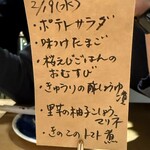 2/19(水)
・ポテトサラダ
・味つけたまご
・桜えびごはんの
おむすび
・きゅうりの豚しょうゆ
漬
・里芋の柚子こしょう
マリネ
・きのこのトマト煮